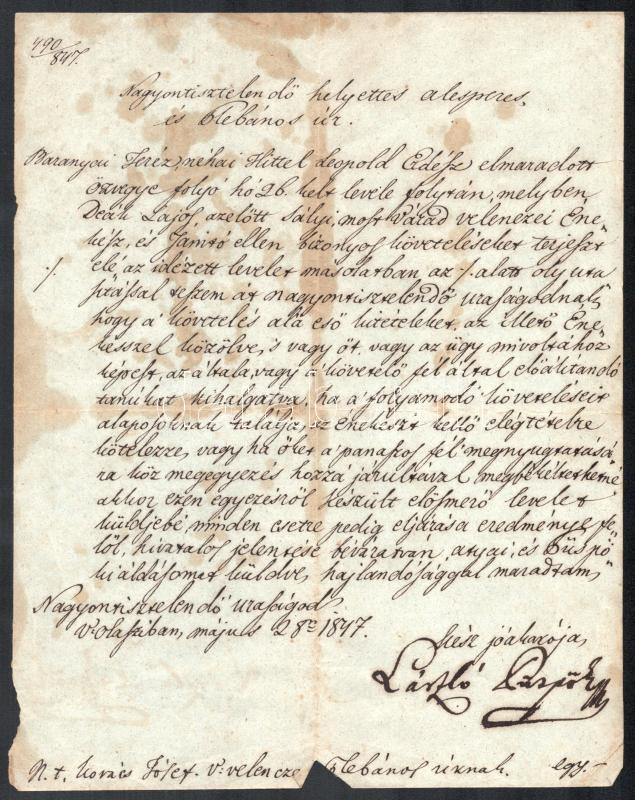 490/847.
Nagyontisztelendő helyettes alesperes,
és Plebános úr.
Baranyai Teréz, néhai Hittel Leopold Erdész elmaradott
özvegye folyó hó 26 kelt levele folytán, melyben
Deák Lajos azelőtt Sályi, most Várad velenczei Éne-
kész, és Tanitó ellen bizonyos követeléseket terjeszt
elé, az idézett levelet másolatban az ·/. alatt oly uta
·/.
sitással teszem át nagyontisztelendő uraságodnak,
hogy a követelés alá eső kitételeket, az illető Éne-
késszel közölve, s vagy őt, vagy az ügy mivoltához
képest, az általa, vagy a követelő fél által előállitandó
tanúkat kihalgatva, ha a folyamodó követeléseit
alaposoknak találja, az énekészt kellő elégtételre
kötelezze, vagy ha őket a panaszos fél megnyugtatásá-
ra köz megegyezés hozzá járultával megbékéltethetné
akkor ezen egyezésről készült elősmerő levelet
küldje bé minden esetre pedig eljárása eredménye fe-
lől, hivatalos jelentése béváratván, atyai, és Püspö-
ki áldásomat küldve, hajlandósággal maradtam
Nagyontisztelendő uraságod
V:olasziban, május 28. 1847.
kész jóakarója,
László Püspök
N. t. Kovács Jósef V: velencze Plebános úrnak.
egy.–